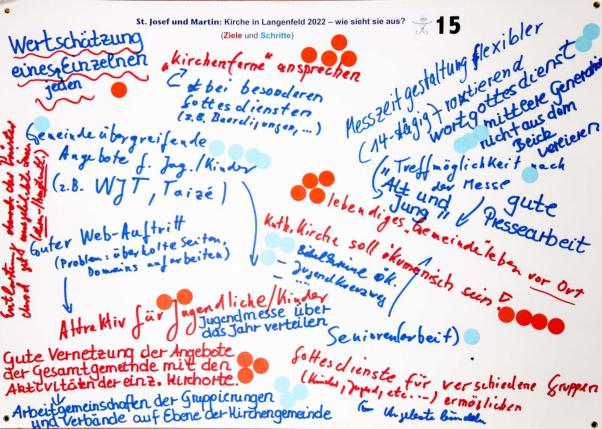 St. Josef und Martin: Kirche in Langenfeld 2022 – wie sieht sie aus?
(Ziele und Schritte)
15
Wertschätzung
eines Einzelnen
jeden
"Kirchenferne" ansprechen
bei besonderen
Gottesdiensten
(z.B. Beerdigungen, ...)
Messzeitgestaltung flexibler
(14-tägig) + rotierend
Wortgottesdienst
mittlere Generation
nicht aus dem
Blick
verlieren
"Treffmöglichkeit nach
der Messe
"Alt und
Jung"
gute
Pressearbeit
Gemeindeübergreifende
Angebote f. Jug./Kinder
(z.B. WJT, Taizé)
Entlastung durch der Priester
lebendiges "Gemeinde"leben vor Ort
Kath. Kirche soll ökumenisch sein!
ök.
Jugendkreuzweg
Guter Web-Auftritt
(Problem: überholte Seiten,
Domains aufarbeiten)
Attraktiv für Jugendliche/Kinder
Jugendmesse über
das Jahr verteilen
Senioren(arbeit)
Gute Vernetzung der Angebote
der Gesamtgemeinde mit den
Aktivitäten der einz. Kirchorte.
Arbeitgemeinschaften der Gruppierungen
und Verbände auf Ebene der Kirchengemeinde
Gottesdienste für verschiedene Gruppen
(Kinder, Jugend, etc...) ermöglichen
Angebote bündeln